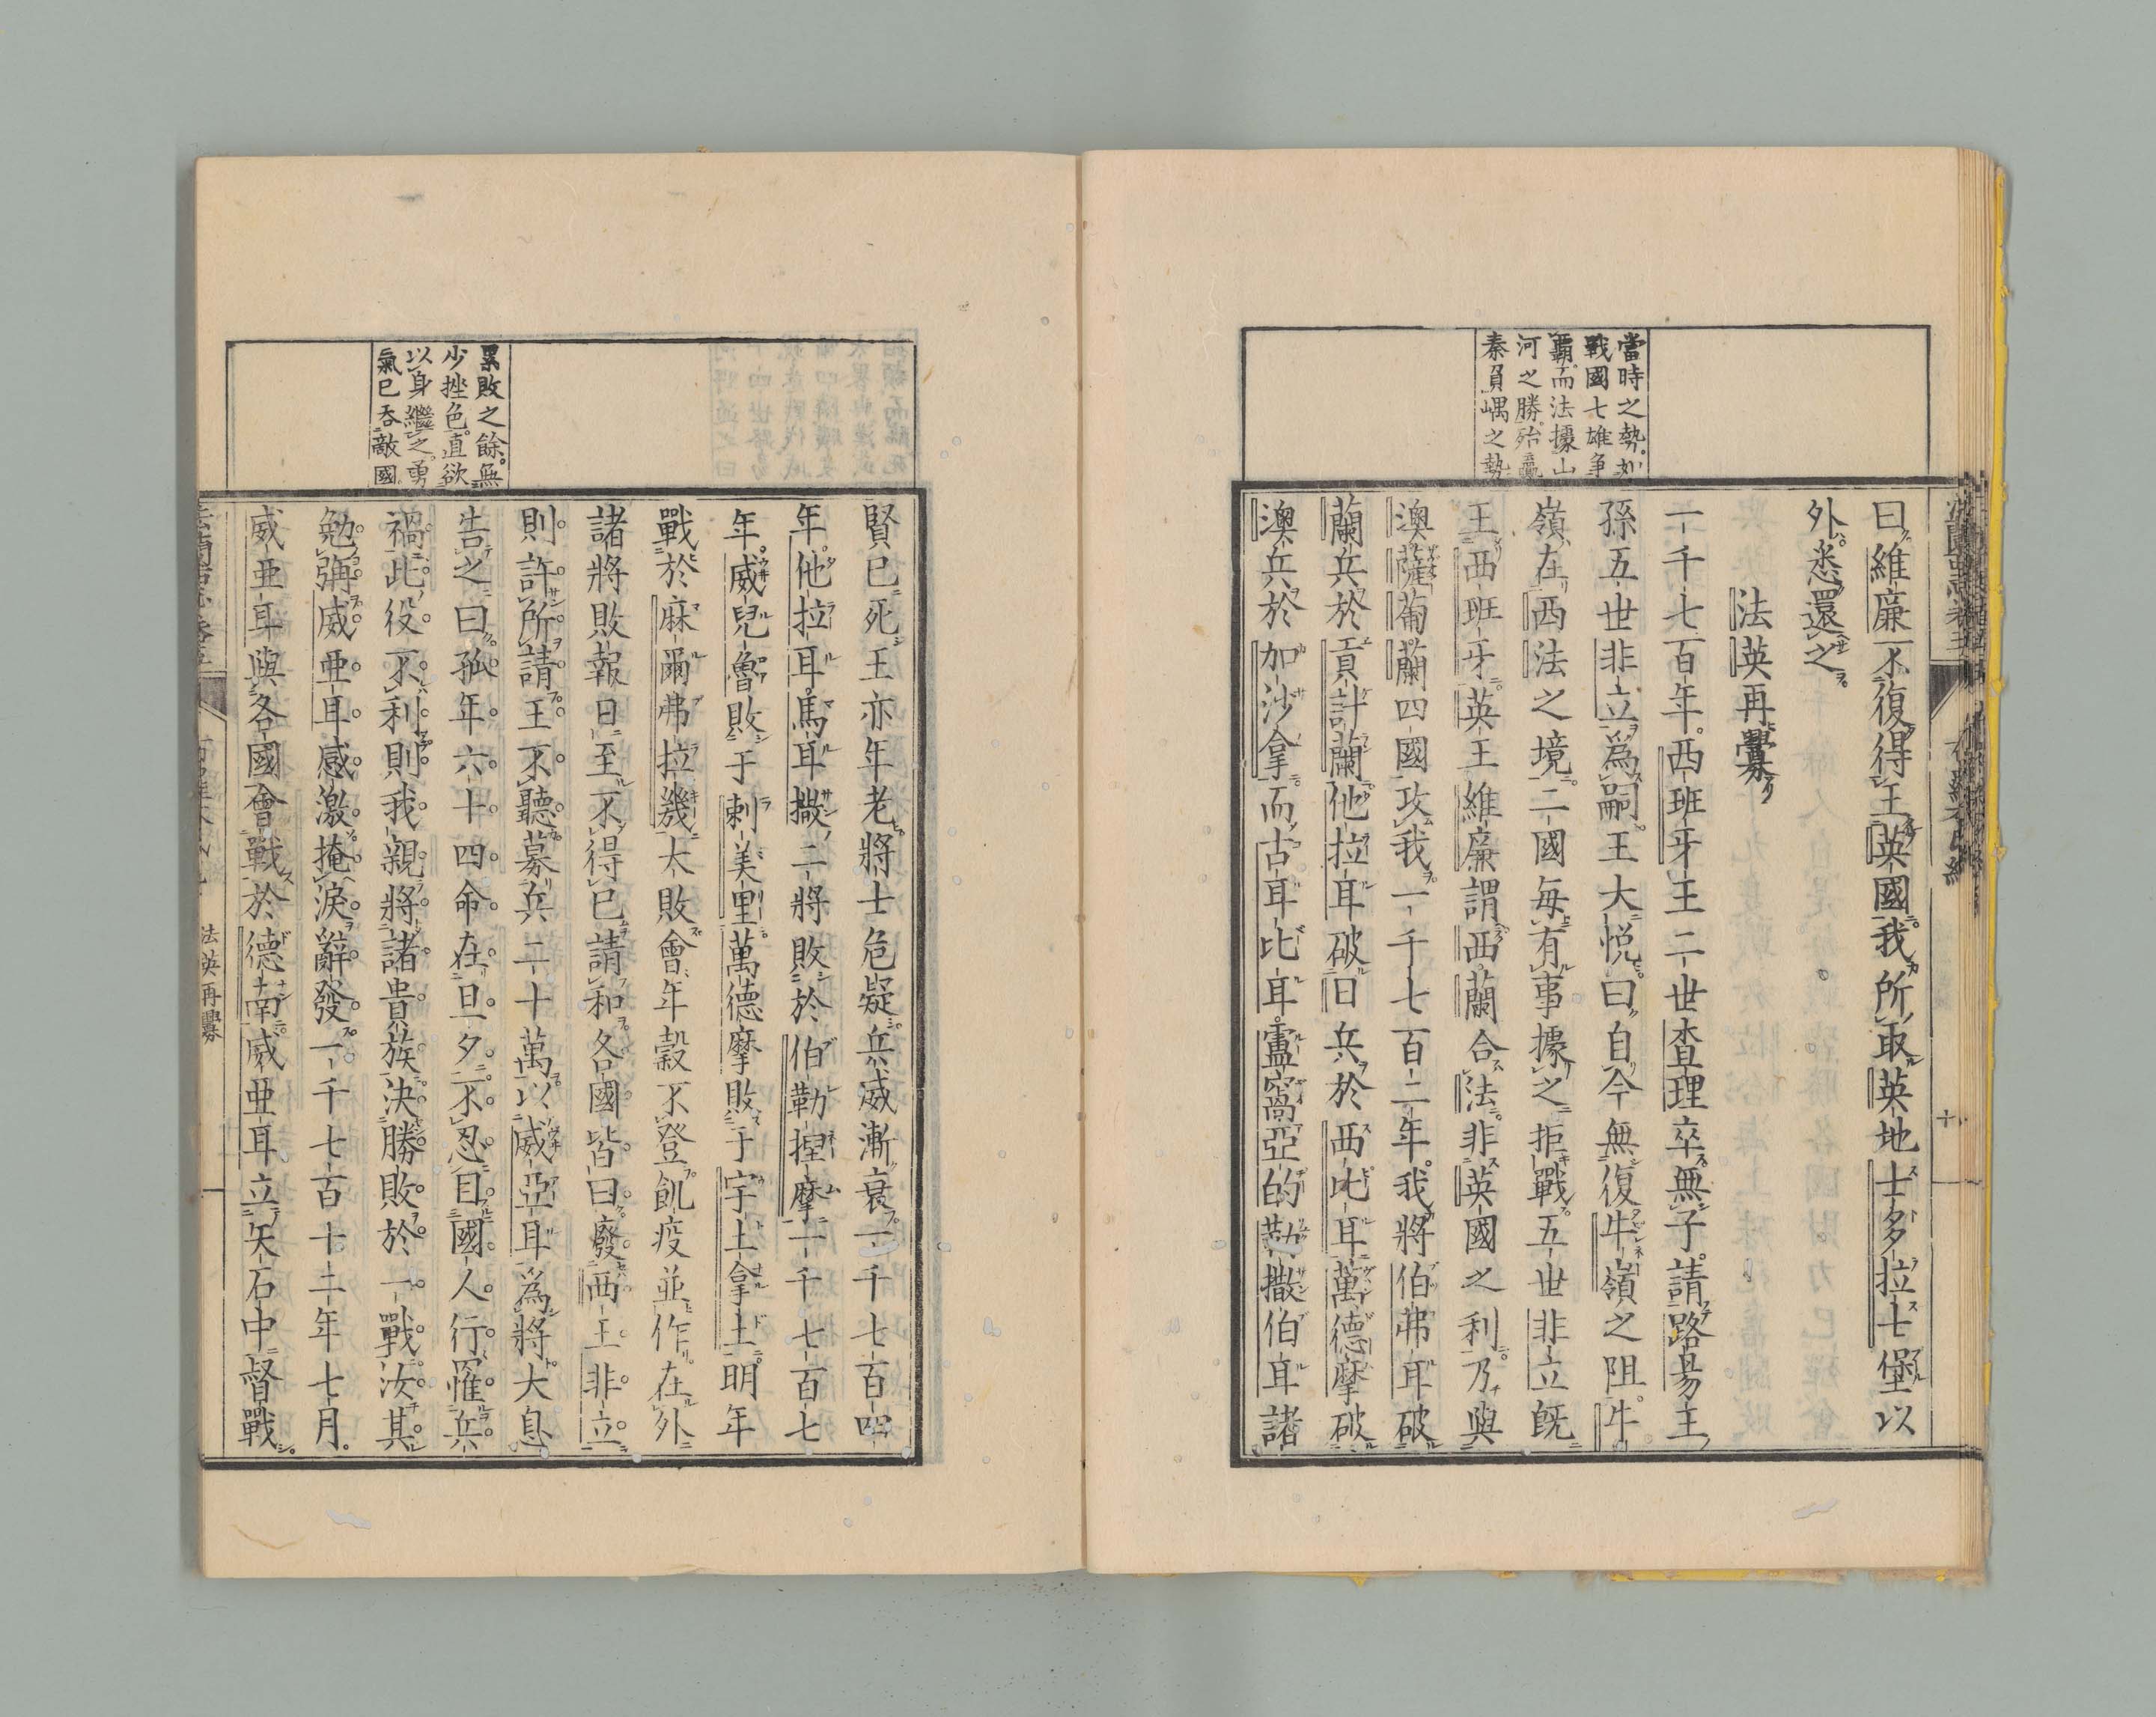 當時之勢如
戰國七雄爭
覇而法據山
河之勝殆
秦負嵎之勢
曰維廉不復得王英國我所取英地士多拉士堡以
外悉還之
法英再釁
一千七百年西班牙王二世查理卒無子請路易王
孫五世非立爲嗣王大悅曰自今無復牛嶺之阻牛
嶺在西法之境二國每有事據之拒戰五世非立既
王西班牙英王維廉謂西蘭合法非英國之利乃與
澳薩葡蘭四國攻我一千七百二年我將伯弗耳破
蘭兵於貢計蘭他拉耳破日兵於西吡耳萬德摩破
澳兵於加沙拿而古耳比耳盧窩亞的勒撒伯耳諸
累敗之餘無
少挫色直欲
以身繼之勇
氣已吞敵國
賢已死王亦年老將士危疑兵威漸衰一千七百四
年他拉耳馬耳撒二將敗於伯勒揑摩一千七百七
年威兒魯敗于剌美里萬德摩敗于宇土拿土明年
戰於麻爾弗拉幾大敗會年穀不登飢疫並作在外
諸將敗報日至不得已請和各國皆曰廢西王非立
則許所請王不聽募兵二十萬以威亞耳爲將大息
告之曰孤年六十四命在旦夕不忍目國人行罹兵
禍此役不利則我親將諸貴族決勝敗於一戰汝其
勉彌威亜耳感激掩淚辭發一千七百十二年七月
威亜耳與各國會戰於德南威亜耳立矢石中督戰
法英再釁